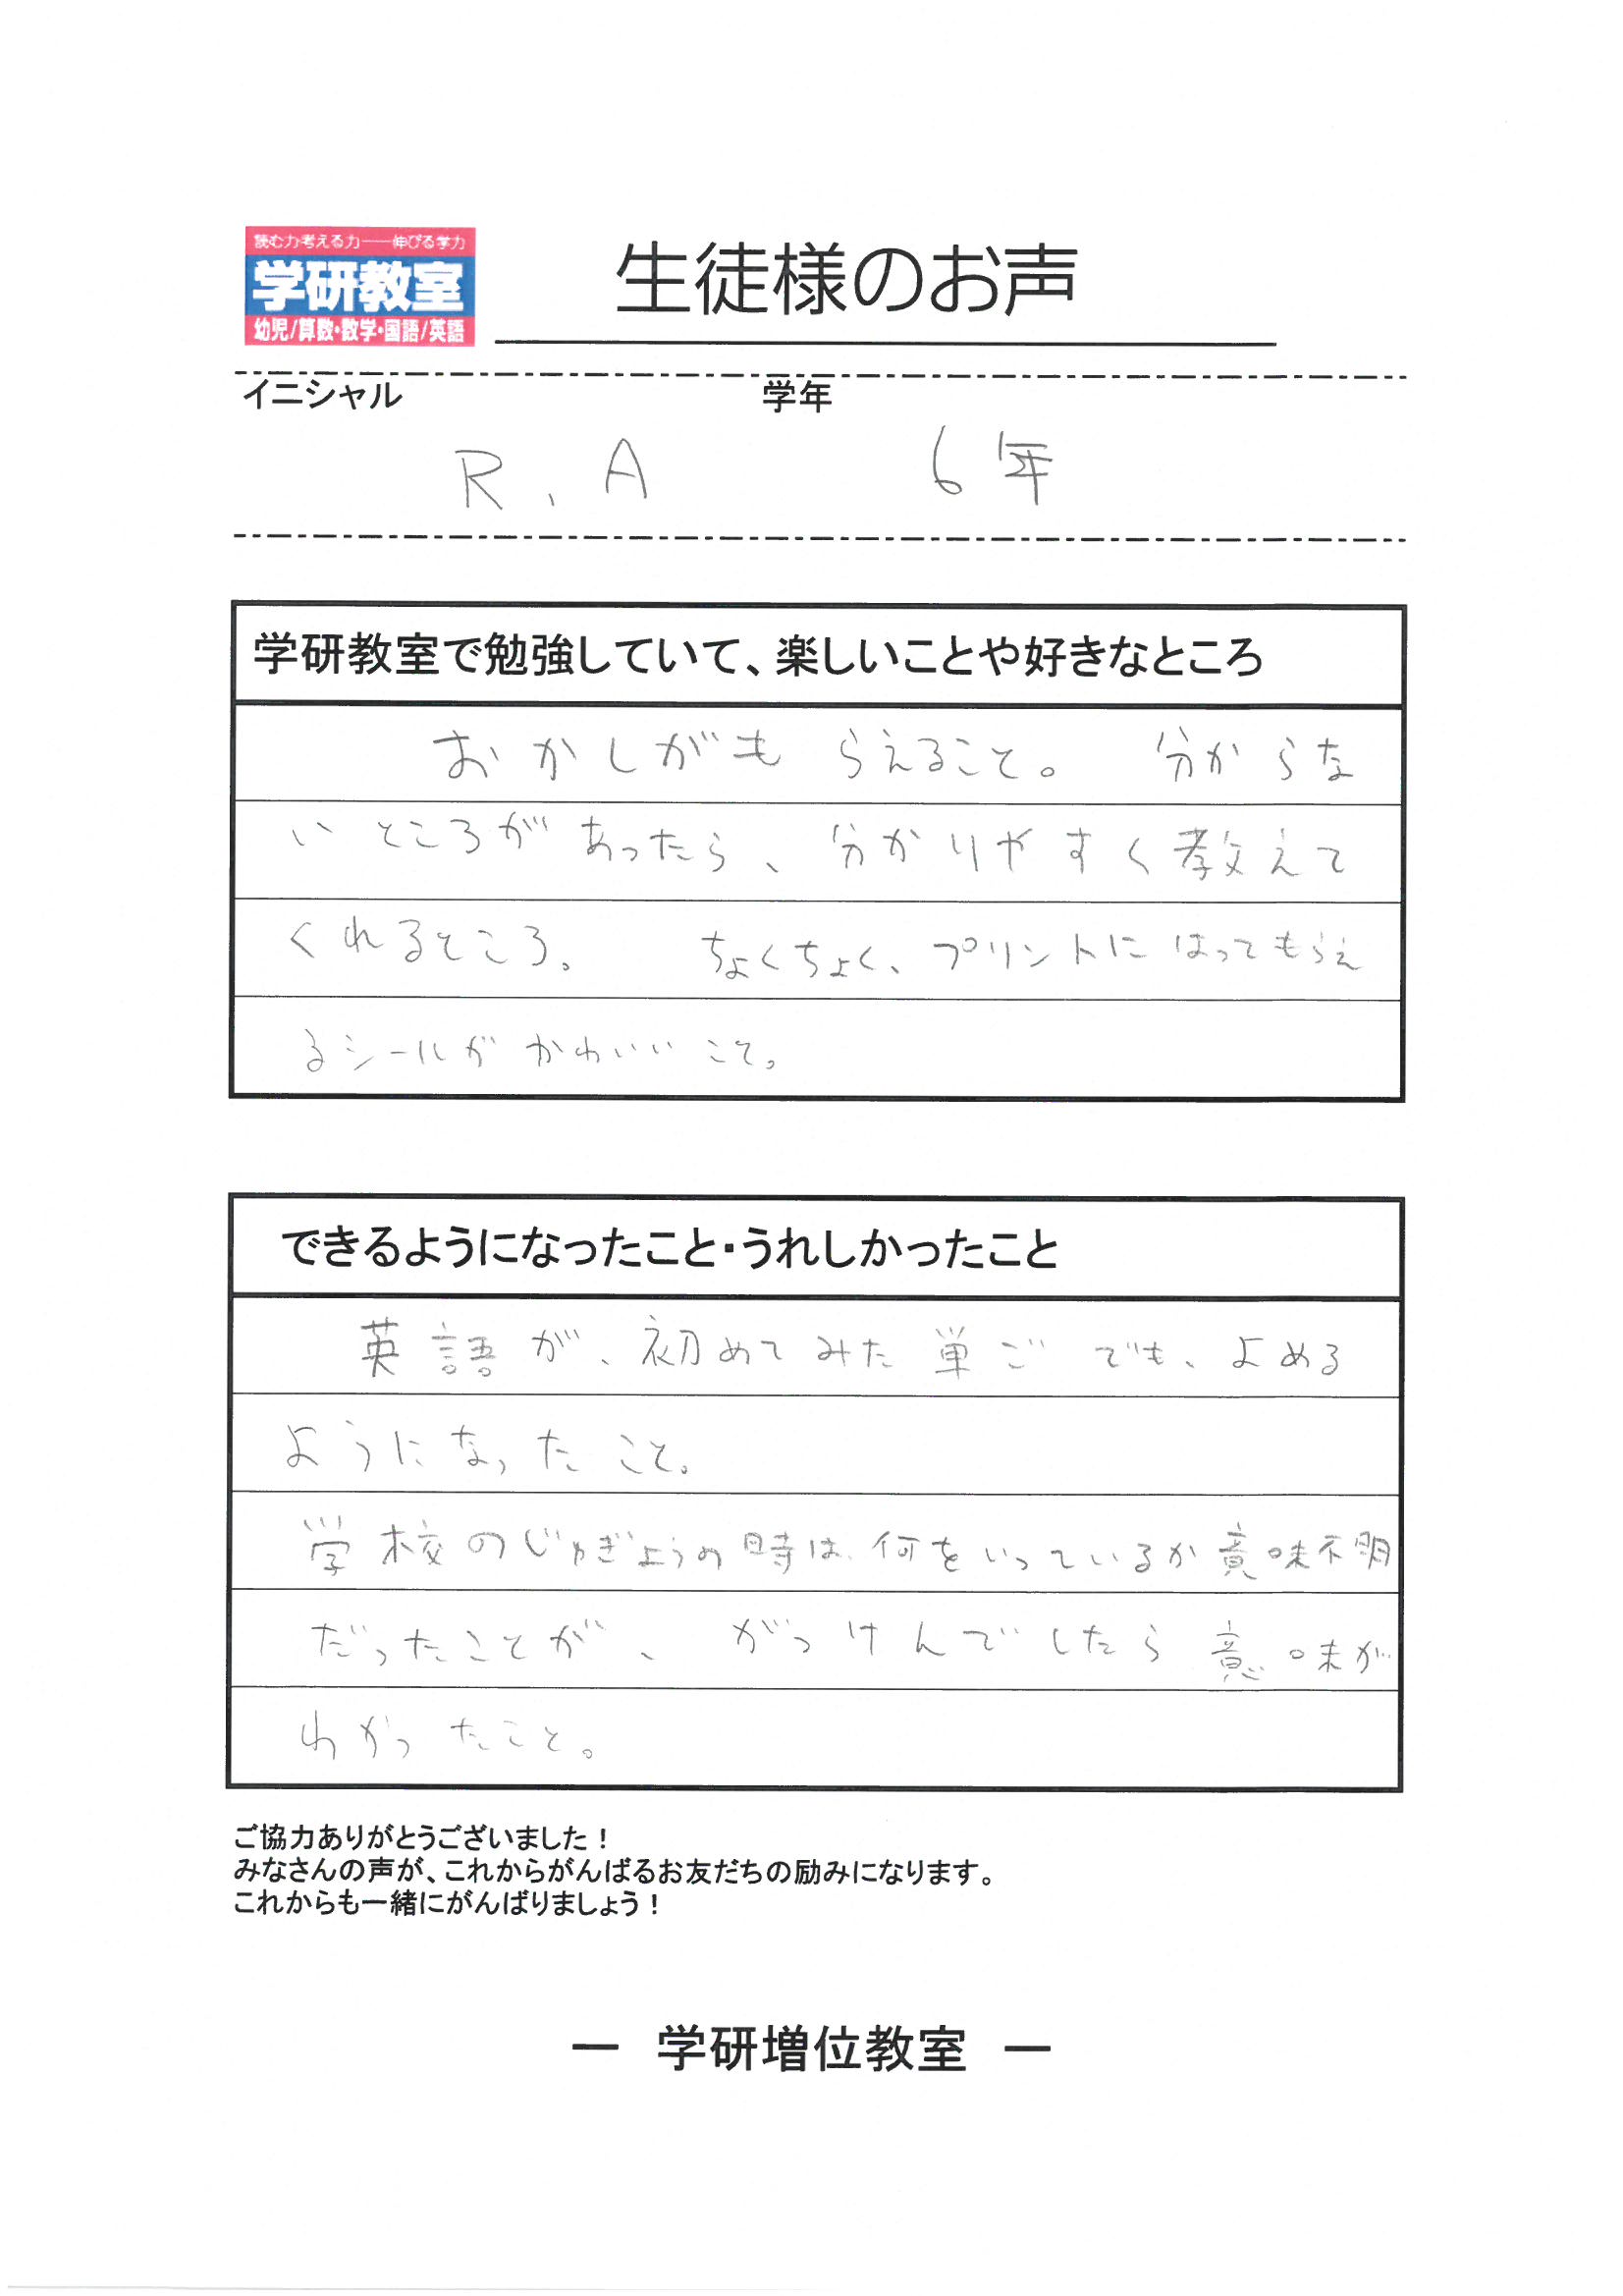 読む力・考える力——伸びる学力
学研教室
幼児/算数・数学・国語/英語
生徒様のお声
イニシャル 学年
R.A 6年
学研教室で勉強していて、楽しいことや好きなところ
おかしがもらえること。 分からな
いところがあったら、分かりやすく教えて
くれるところ。 ちょくちょく、プリントにはってもらえ
るシールがかわいいこと。
できるようになったこと・うれしかったこと
英語が、初めてみた単ごでも、よめる
ようになったこと。
学校のじゅぎょうの時は、何をいっているか意味不明
だったことが、がっけんでしたら意味が
わかったこと。
ご協力ありがとうございました！
みなさんの声が、これからがんばるお友だちの励みになります。
これからも一緒にがんばりましょう！
― 学研増位教室 ―